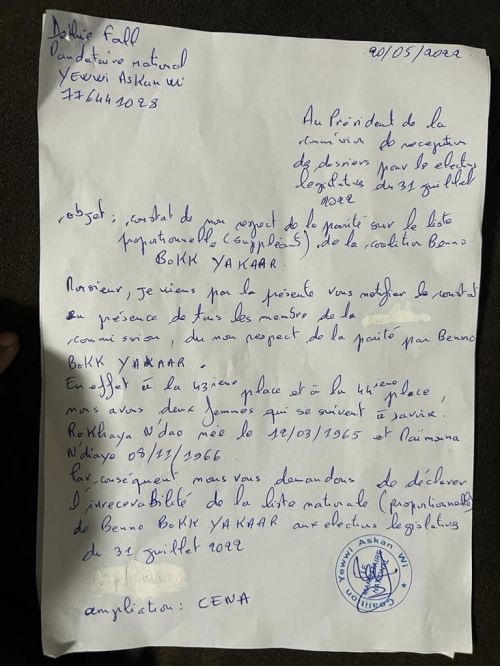 Dethie Fall
Mandataire national
YEWWI ASKan Wi
776441028
20/05/2022
Au Président de la
commission de reception
de dossiers pour le elections
legislatives du 31 juillet
2022
objet : constat de non respect de la parité sur le liste
proportionnelle (suppléant) de la coalition Benno
BOKK YAKAAR.
Monsieur, je viens par la présente vous notifier le constat
en présence de tous les membre de la
commission, du non respect de la parité par Benno
BOKK YAKAAR.
En effet à la 43ieme place et à la 44ieme place,
nous avons deux femmes qui se suivent à savoir:
Rokhaya N'dao née le 12/03/1965 et Maïmouna
N'diaye 08/11/1966
Par conséquent nous vous demandons de déclarer
l'irrecevabilité de la liste nationale (proportionnelle)
de Benno BOKK YAKAAR aux elections legislatives
du 31 juillet 2022
ampliation : CENA
Coalition Yewwi Askan Wi
LE MANDATAIRE NATIONAL